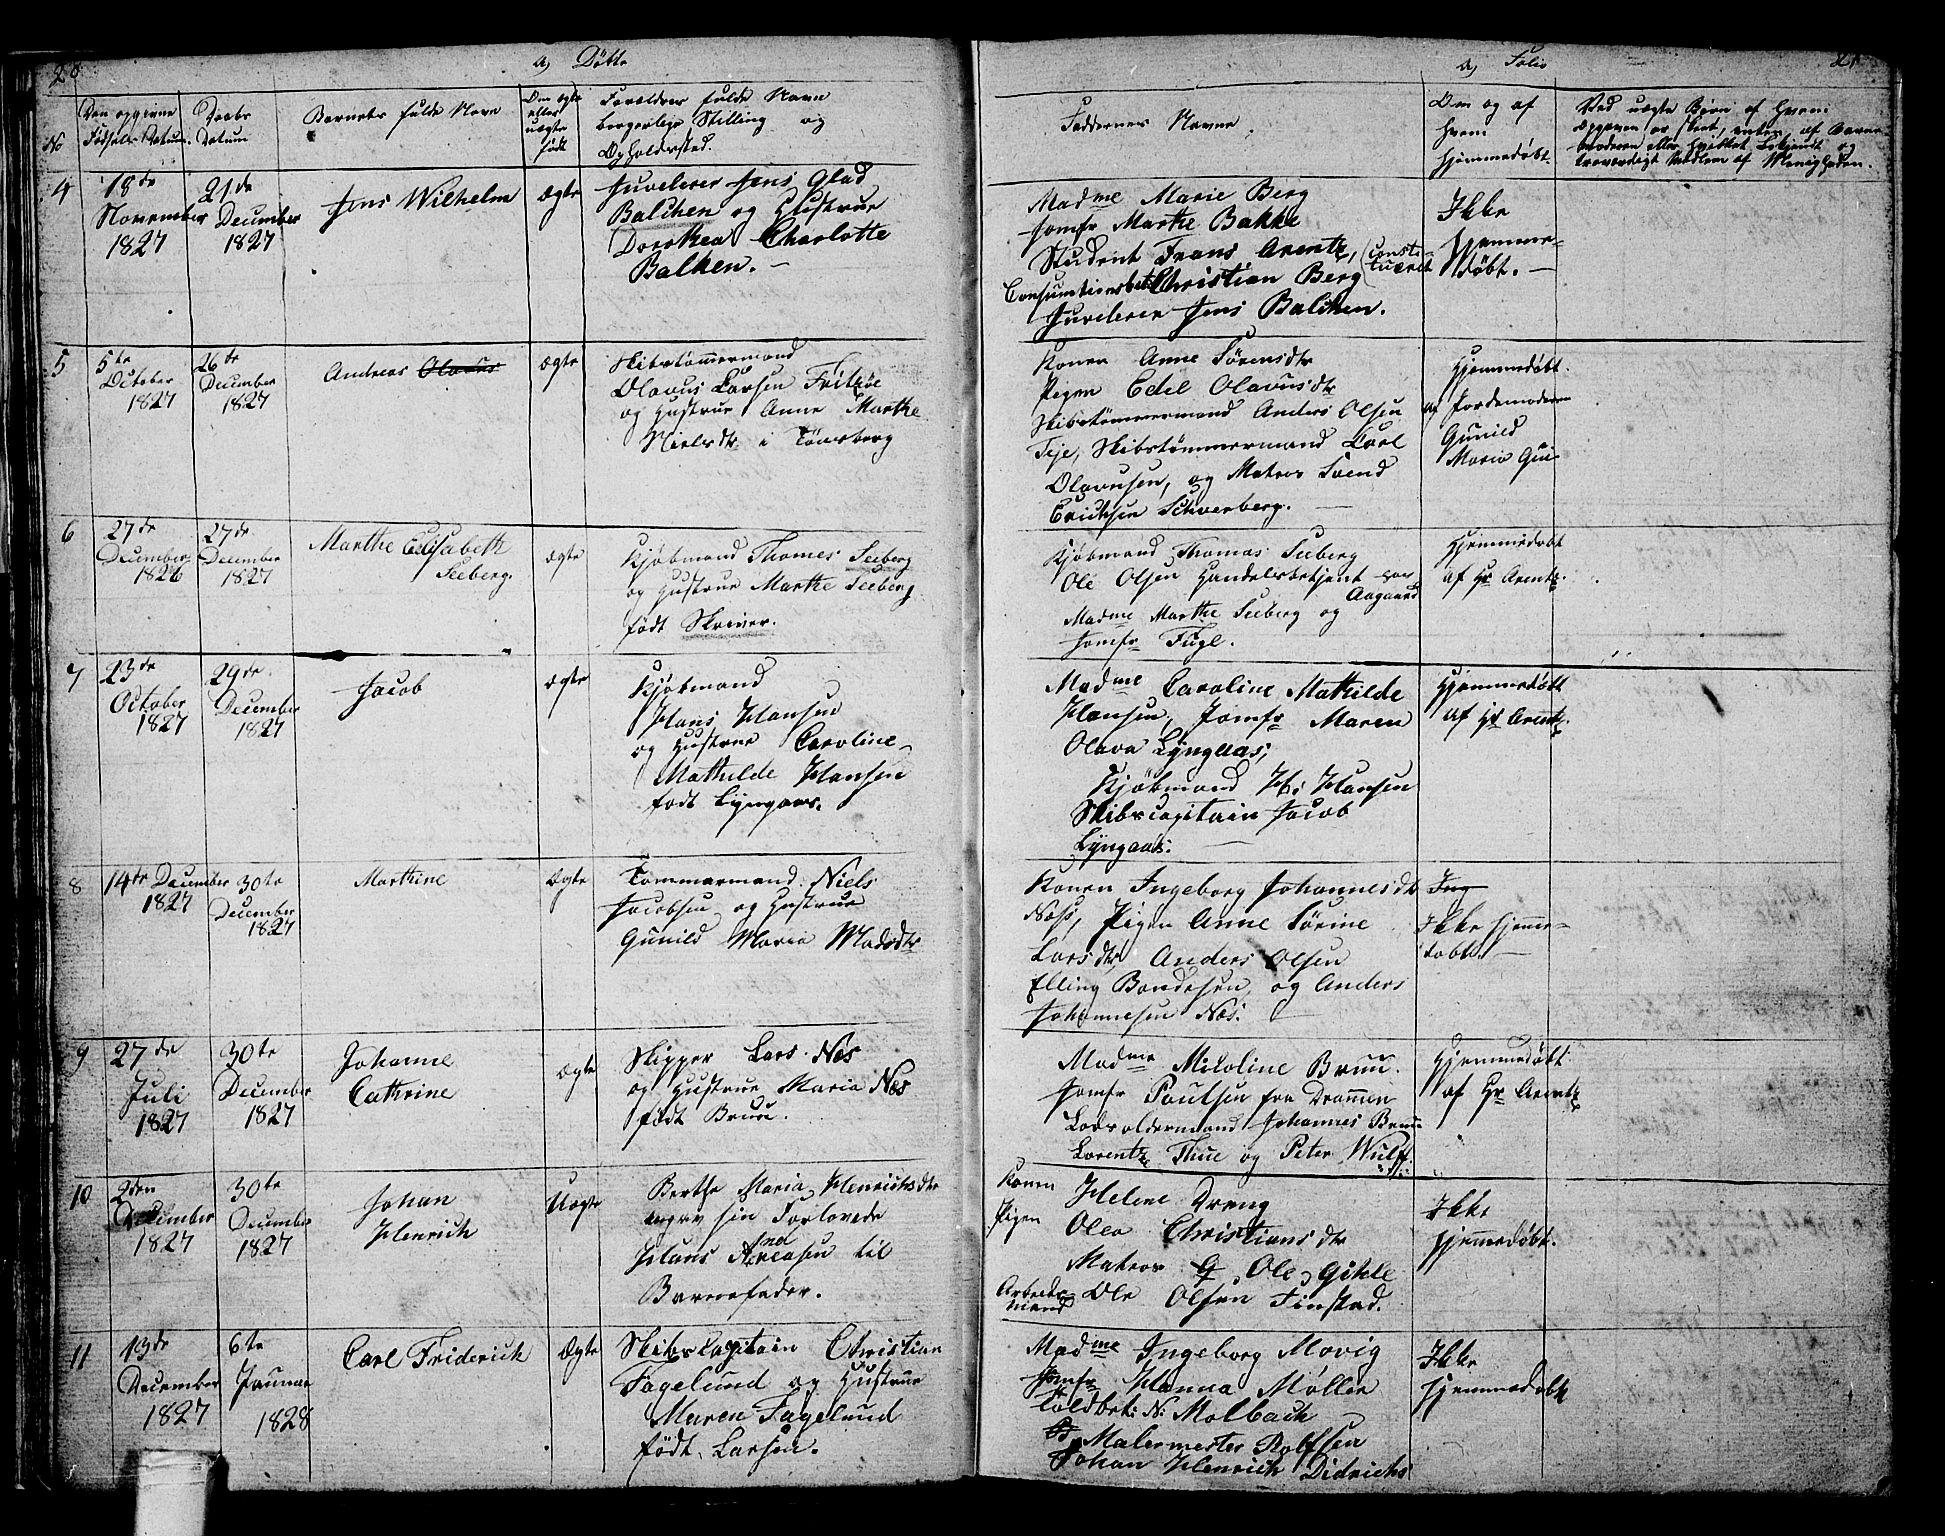 28
a) Døtte
No
Den opgivne
Fødsels Datum.
Daabs
Datum
Barnets fulde Navn
Om ægte
eller
uægte
født
Forældres fulde Navn
borgerlige Stilling og
Opholdssted.
4
18de
November
1827
21de
December
1827
Jens Wilhelm
ægte
Juvelerer Jens Glad
Balchen og Hustrue
Dorothea Charlotte
Balken. –
5
5te
October
1827
26de
December
1827
Andreas Olavus
ægte
Skibstømmermand
Olavus Larsen Fritzøe
og Hustrue Anne Marthe
Nielsdtr i Tønsberg
6
27de
December
1826
27de
December
1827
Marthe Elisabeth
Seeberg.
ægte
Kjøbmand Thomes Seeberg
og Hustrue Marthe Seeberg
født Skriver.
7
23de
October
1827
29de
December
1827
Jacob
ægte
Kjøbmand
Hans Hansen
og Hustrue Caroline
Mathilde Hansen
født Lyngaas.
8
14de December
1827
30te
December
1827
Marthine
Ægte
Tømmermand Niels
Jacobsen og Hustrue
Gunild Maria Madsdtr
9
27de
Juli
1827
30te
December
1827
Johanne
Cathrine
Ægte
Skipper Lars Næs
og Hustrue Maria Næs
født Bruun.
10
2den
December
1827
30te
December
1827
Johan
Henrich
Uægte
Berthe Maria Henrichsdtr
angav sin Forlovede
Hans Andreasen til
Barnefader.
11
13de
December
1827
6te
Januar
1828
Carl Friderich
Ægte
Skibscapitain Christian
Fagelund og Hustrue
Maren Fagelund
født Larsen.
a) Folio
Faddernes Navne
Om og af
hvem
hjemmedøbt.
Ved uægte Børn af hvem
Opgaven er skeet, enten af Barne
moderen eller hvilket bekjendt og
troværdigt Medlem af Menigheden.
Madme Marie Berg
Jomfr Marthe Bakke
Student Frans Arentz, (consti-
tueret
Consumtionsbetj Christian Berg
Juveleren Jens Balchen.
Ikke
hjemme-
døbt. –
Konen Anne Sørensdtr
Pigen Edel Olavusdtr
Skibstømmermand Anders Olsen
Teje, Skibstømmermand Carl
Olavusen, og Matros Svend
Erichsen Schverberg. –
Hjemmedøbt.
af Jordemoderen
Gunild
Maria
Kjøbmand Thomas Seeberg
Ole Olsen Handelsbetjent hos
Aagaard
Madme Marthe Seeberg og
Jomfr Fugl.
Hjemmedøbt
af Hr Arentz.
Madme Caroline Mathilde
Hansen, Jomfr Maren
Olava Lyngaas,
Kjøbmand H: Hansen
Skibscapitain Jacob
Lyngaas. –
Hjemmedøbt
af Hr Arentz.
Konen Ingeborg Johannesdtr
Næss, Pigen Anne Sørine
Larsdtr, Anders Olsen
Elling Bondesen, og Anders
Johannesen Næs.
Ing
Ikke hjemme-
døbt. –
Madme Nicoline Bruun.
Jomfr Poulsen fra Drammen
Lodsoldermand Johannes Bruun
Lorentz Thue og Peter Wulff.
Hjemmedøbt
af Hr Arentz
Konen Helene Dreng
Pigen Olea Christiansdtr
Matros G Ole Gihle
Arbeids-
mand Ole Olsen Finstad.
Ikke
hjemmedøbt.
Madme Ingeborg Movig
Jomfr Hanna Møller
Toldbet: N: Molbach
Malermester Rolfsen
Johan Henrich Didrichs
Ikke
hjemmedøbt